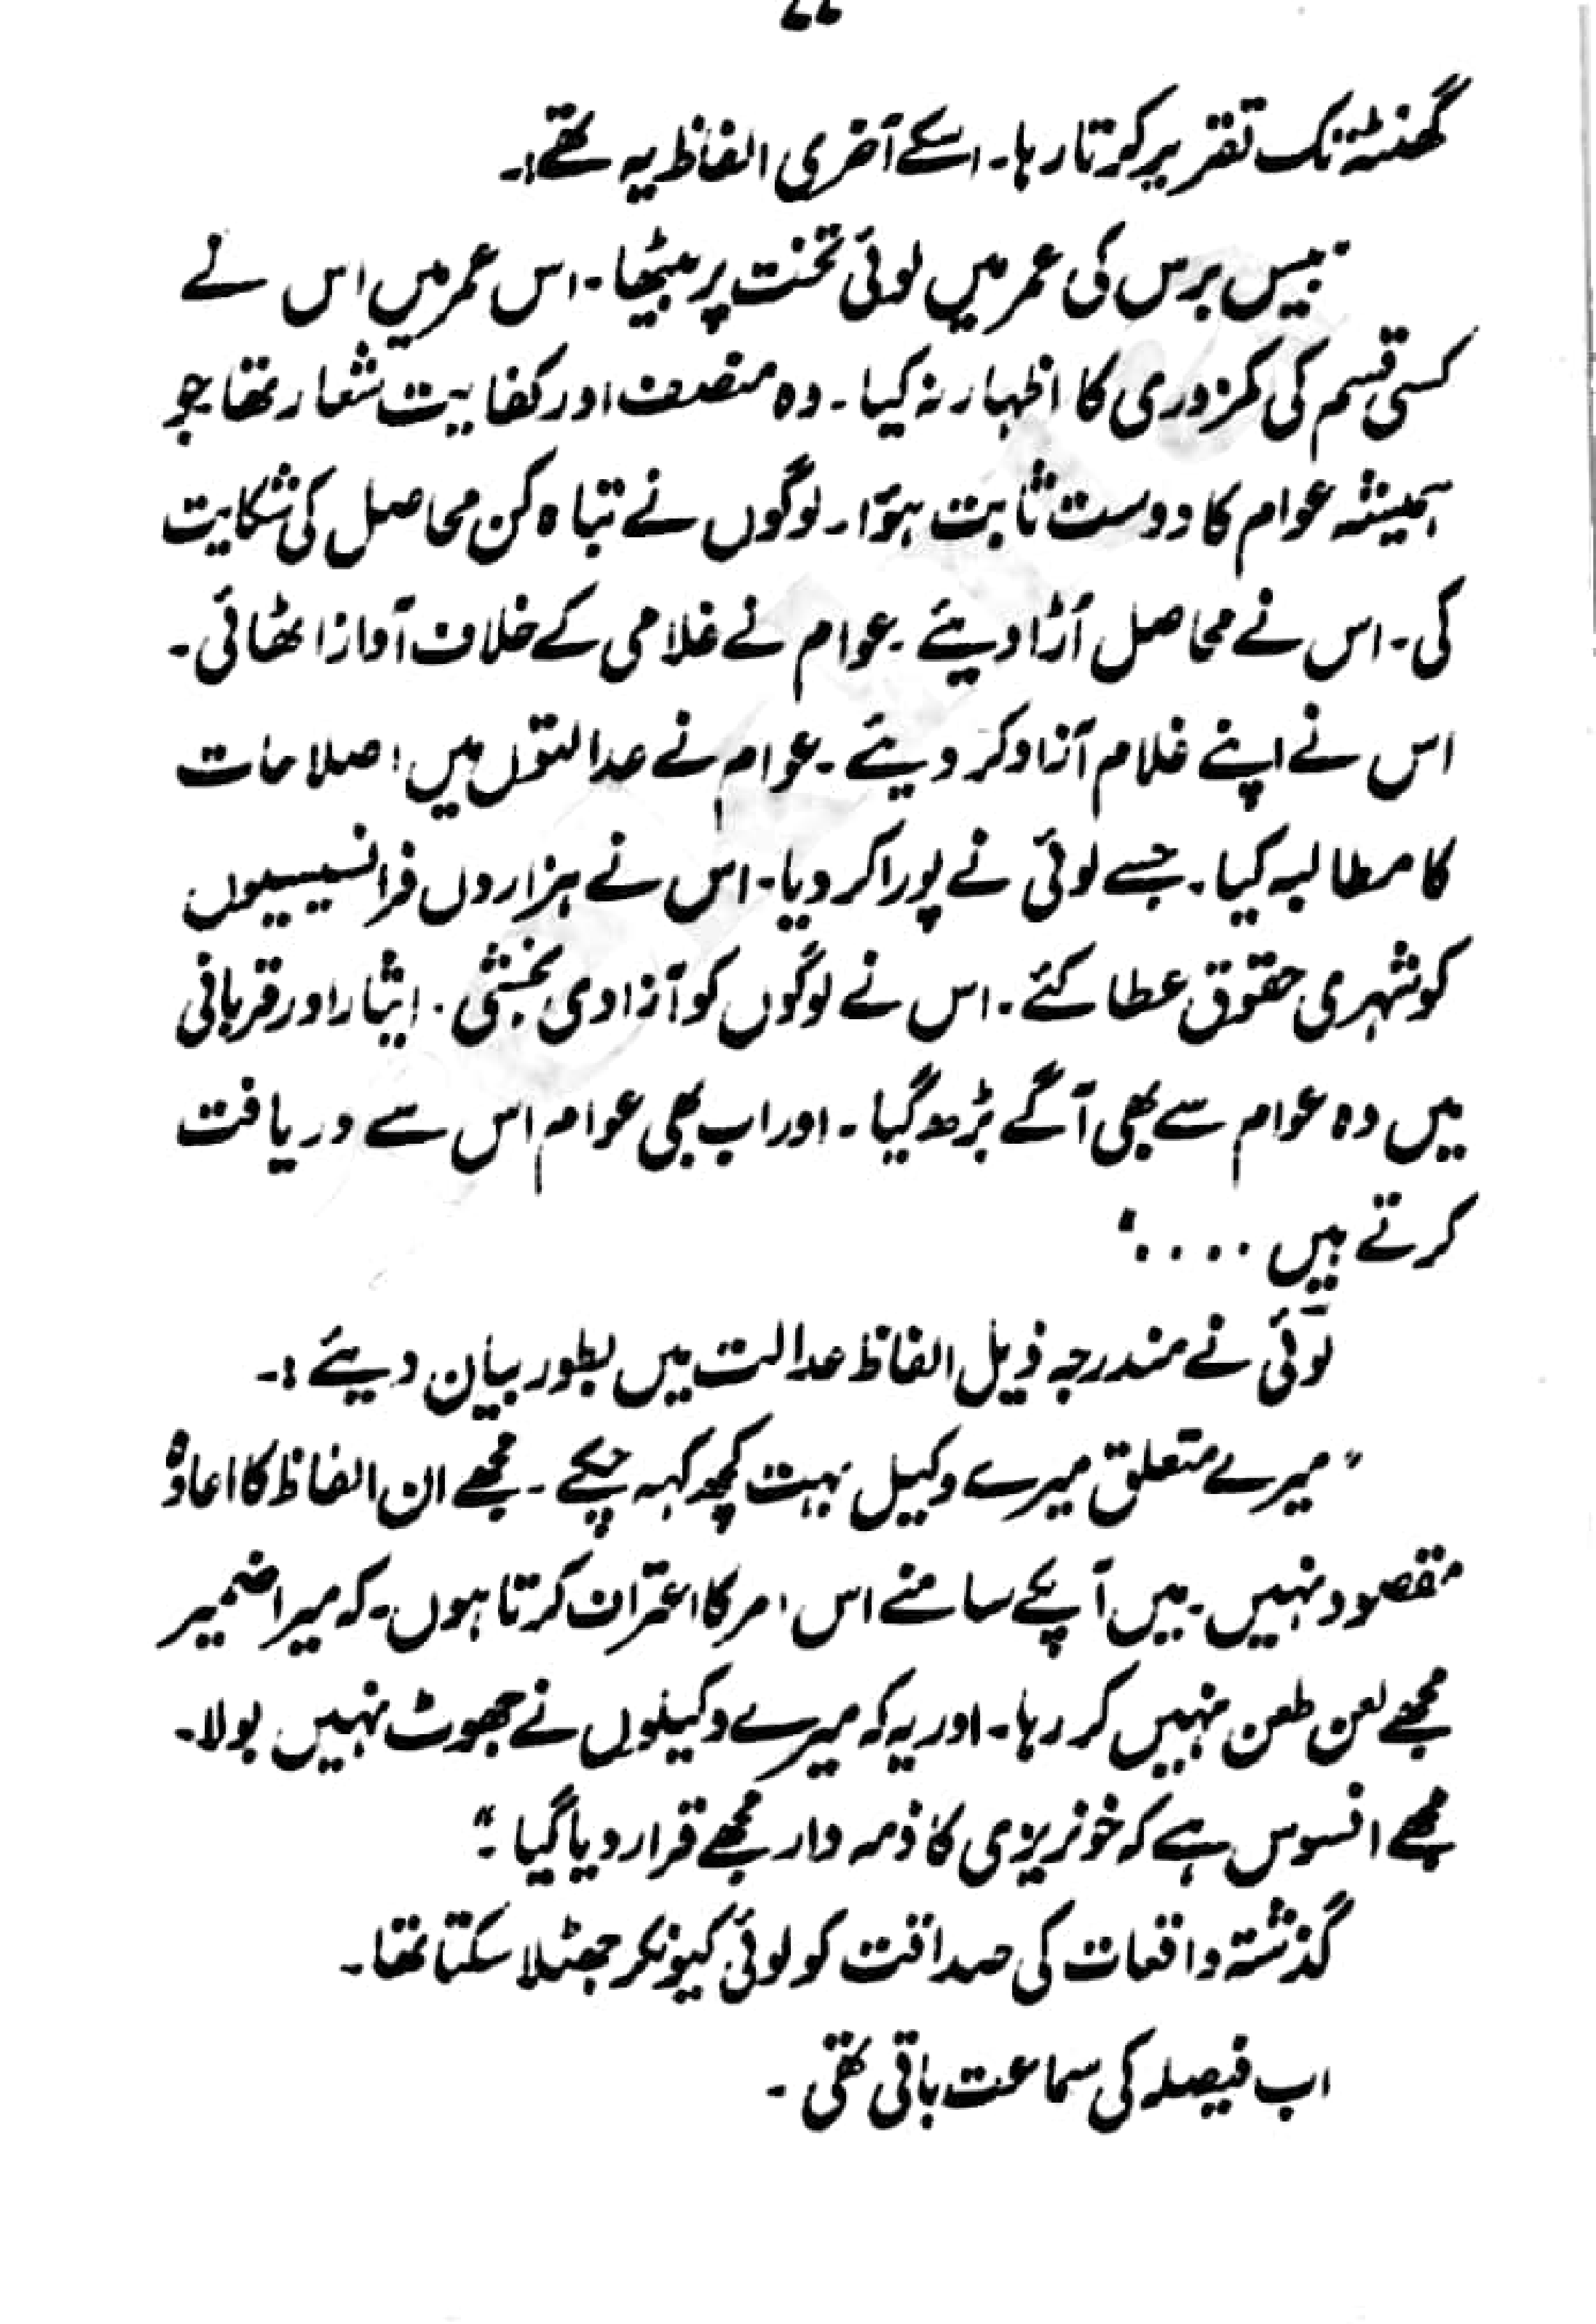 گھنٹہ تک تقریر کرتا رہا۔ اسکے آخری الفاظ یہ تھے:۔
"بیس برس کی عمر میں لوئی تخت پر بیٹھا۔ اس عمر میں اس نے
کسی قسم کی کمزوری کا اظہار نہ کیا۔ وہ منصف اور کفایت شعار تھا جو
ہمیشہ عوام کا دوست ثابت ہوٗا۔ لوگوں نے تباہ کن محاصل کی شکایت
کی۔ اس نے محاصل اُڑا دیئے۔ عوام نے غلامی کے خلاف آواز اٹھائی۔
اس نے اپنے غلام آزاد کر دیئے۔ عوام نے عدالتوں میں اصلاحات
کا مطالبہ کیا۔ جسے لوئی نے پورا کر دیا۔ اس نے ہزاروں فرانسیسیوں
کو شہری حقوق عطا کئے۔ اس نے لوگوں کو آزادی بخشی۔ ایثار اور قربانی
میں وہ عوام سے بھی آگے بڑھ گیا۔ اور اب بھی عوام اس سے دریافت
کرتے ہیں ....."
لوئی نے مندرجہ ذیل الفاظ عدالت میں بطور بیان دیئے:۔
"میرے متعلق میرے وکیل بہت کچھ کہہ چکے۔ مجھے ان الفاظ کا اعادہ
مقصود نہیں۔ میں آپکے سامنے اس امر کا اعتراف کرتا ہوں۔ کہ میرا ضمیر
مجھے لعن طعن نہیں کر رہا۔ اور یہ کہ میرے وکیلوں نے جھوٹ نہیں بولا۔
مجھے افسوس ہے کہ خونریزی کا ذمہ دار مجھے قرار دیا گیا۔"
گذشتہ واقعات کی صداقت کو لوئی کیونکر جھٹلا سکتا تھا۔
اب فیصلہ کی سماعت باقی تھی۔